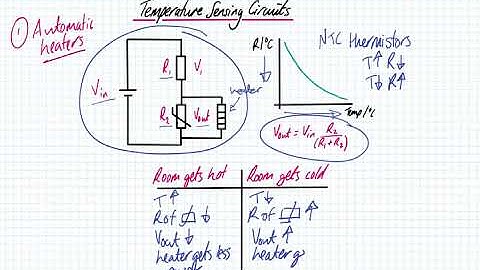 Temperature Sensing Circuits
① Automatic
heaters
R1
V1
Vin
R2
Vout
heater
R/°C
Temp/°C
NTC thermistors
T↑ R↓
T↓ R↑
Vout = Vin R2/(R1+R2)
Room gets hot
Room gets cold
T↑
R of ↓
Vout ↓
heater gets less
T↓
R of ↑
Vout ↑
heater g